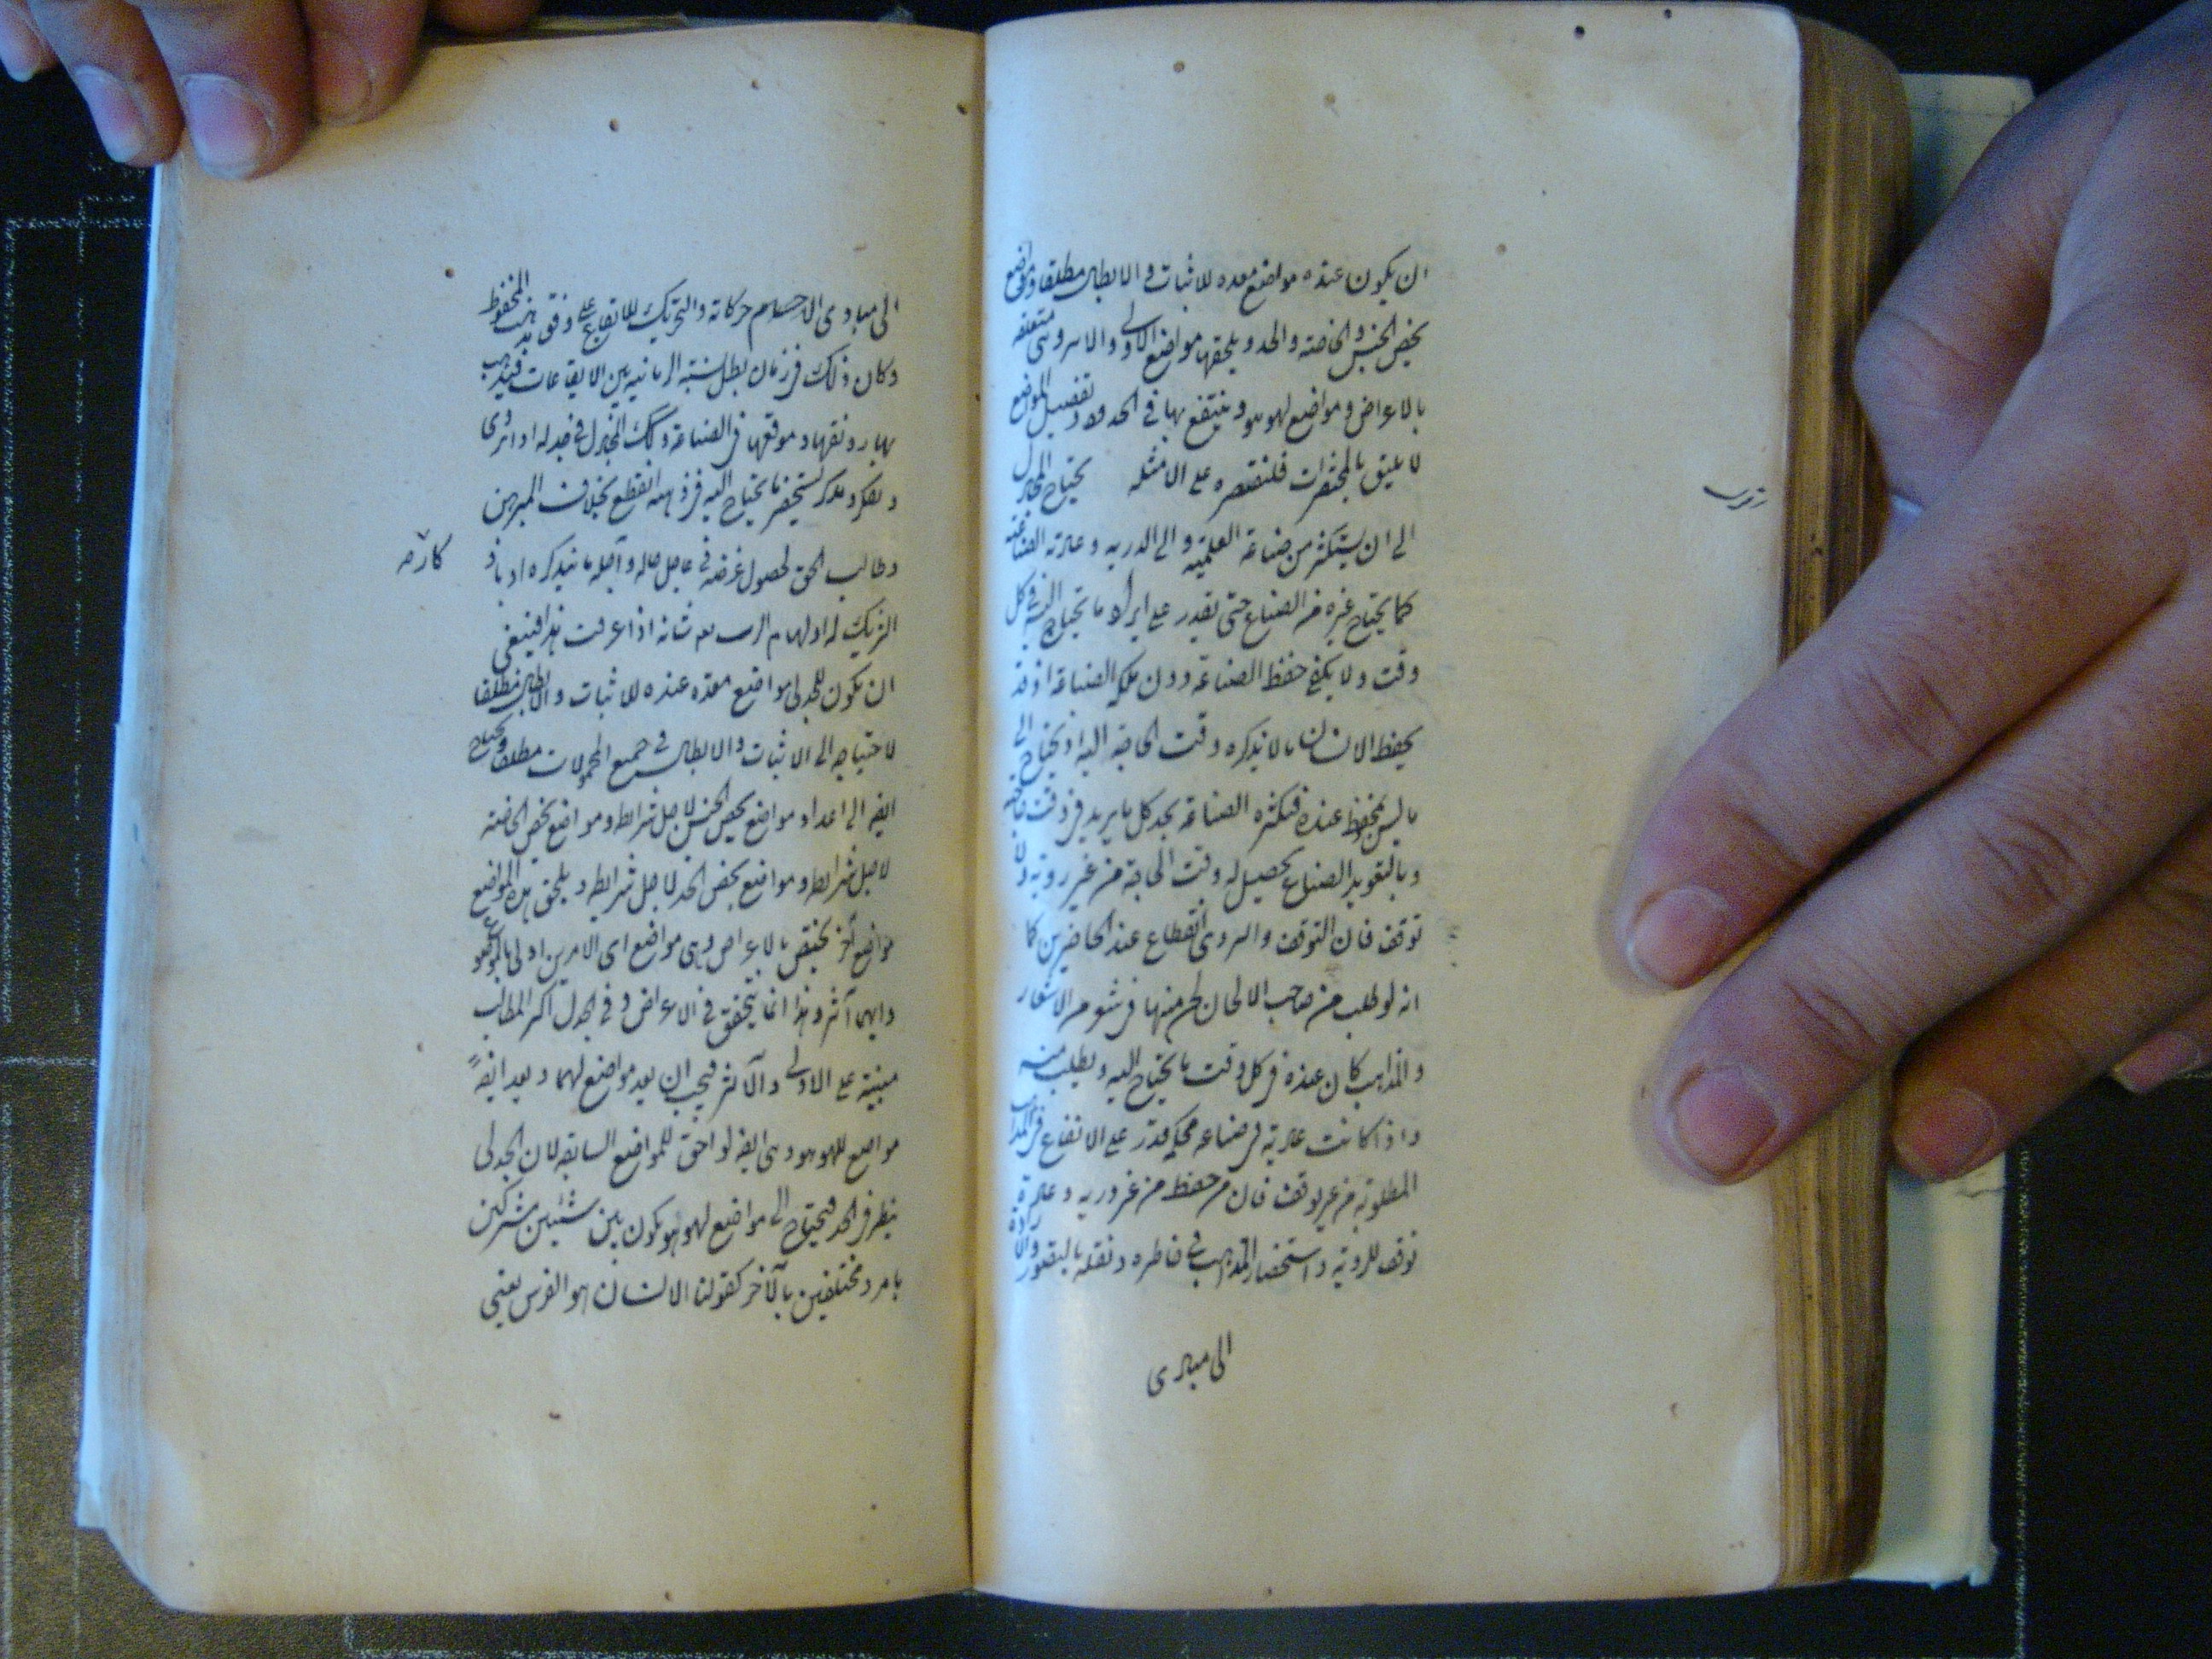 ان يكون عنده مواضع معده للاثبات والابطال مطلقا ومواضع
يخص الجنس والخاصة والحد ويلحقها مواضع الاولى والاثر وهى متعلقه
بالاعراض ومواضع لهوهو وينتفع بها في الحدود وتفصيل المواضع
لا يليق بالمختصرات فلنقتصر على الامثلة يحتاج المجادل
الى ان يستكثر من صناعة العلمية والى الدربه وعادته الصناعية
كما يحتاج غيره من الصناع حتى يقدر على ايراد ما يحتاج اليه في كل
وقت ولا يكفى حفظ الصناعة دون ملكة الصناعة اذ قد
يحفظ الانسان ما لا يتذكره وقت الحاجة اليه او يحتاج الى
ما ليس بمحفوظ عنده فبكثرة الصناعة يجد كل ما يريد في وقت حاجته
وبالتعويد الصناعى يحصل له وقت الحاجة من غير روية ولا
توقف فان التوقف والتروى انقطاع عند الحاضرين كما
انه لو طلب من صاحب الالحان لحن منها في شعر من الاشعار
والمذاهب كان عنده في كل وقت ما يحتاج اليه ويطلب منه
واذا كانت عادته في صناعة محكمة قدر على الانتفاع في المذاهب
المطلوبة من غير توقف فان من حفظ من غير دربه وعادة
توقف للروية واستحضار المذاهب في خاطره ونقله بالتصور والارادة
الى مبادى
الى مبادى الاجسام حركاته والتحريك للايقاع على وفق مذهب المحفوظ
وكان ذلك في زمان يطل نسبته الزمانية بين الايقاعات فيذهب
بها رونقها وموقعها في الصناعة وكذلك المجادل في جدله اذا تروى
وتفكر وتذكر ليستحضر ما يحتاج اليه في ذهنه انقطع بخلاف المبرهن
وطالب الحق لحصول غرضه في عاجل حاله وآجله ما يتذكره او باذ
الشريك له او لهام الرب تعه شانه اذا عرفت هذا فينبغى
ان يكون للجدلى مواضع معدة عنده للاثبات والابطال مطلقا
لاحتياجه الى الاثبات والابطال في جميع المحمولات مطلقا ويحتاج
ايضا الى اعداد مواضع يخص الجنس لاجل شرائطه ومواضع يخص الخاصة
لاجل شرائطه ومواضع يخص الحد لاجل شرائطه ويلحق بهذه المواضع
مواضع آخر يختص بالاعراض وهى مواضع اى الامرين اولى بالموضوع
وايهما آثر وهذا انما يتحقق في الاعراض وفي الجدل اكثر المطالب
مبنية على الاولى والآثر فيجب ان يعد مواضع لهما ويعد ايضا
مواضع للهوهو وهى ايضا لواحق للمواضع السابقه لان الجدلى
ينظر في الحد فيحتاج الى مواضع لهوهو يكون بين شيئين مشتركين
بامر ومختلفين بالآخر كقولنا الانسان هو الفرس يعنى